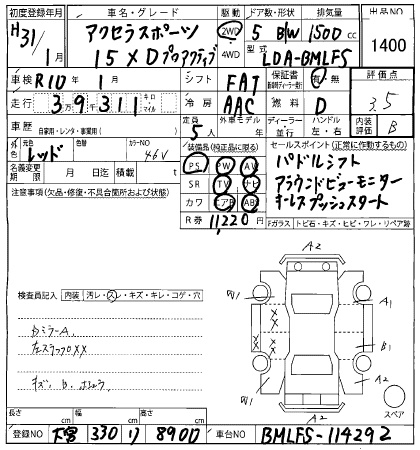 初度登録年月 車名・グレード 駆動 ドア数・形状 排気量 出品NO
H31/1月 アクセラスポーツ 2WD 4WD 5 B/W 1500cc 1400
15XDプロアクティブ 型式 LDA-BMLFS
車検 R10年 1月 シフト FAT 保証書 有・無 評価点
走行 39万311 キロ・マイル 冷房 AAC 燃料 D 3.5
車歴 自家用・レンタ・事業用( ) 定員 5人 外車モデル 年 ディーラー・並行 ハンドル 左・右 内装評価 B
元色 レッド 色替 カラーNO 46V
名義変更期限 月 日迄 積載 t
装備品(純正品に限る)
PS PW AW
SR TV ナビ
カワ エアB ABS
R券 11,220円
セールスポイント(正常に作動するもの)
パドルシフト
アラウンドビューモニター
キーレスプッシュスタート
注意事項(欠品・修復・不具合箇所および状態)
Fガラス トビ石・キズ・ヒビ・ワレ・リペア跡
検査員記入 内装 汚レ・スレ・キズ・キレ・コゲ・穴
DミラーA.
左ステップXX
キズ、B.
A2
W1
A1
X
X
X
X
B1
W1
A2
A2
スペア
長さ cm 幅 cm 高さ cm
登録NO 大宮 330 リ 8900 車台NO BMLFS-114292